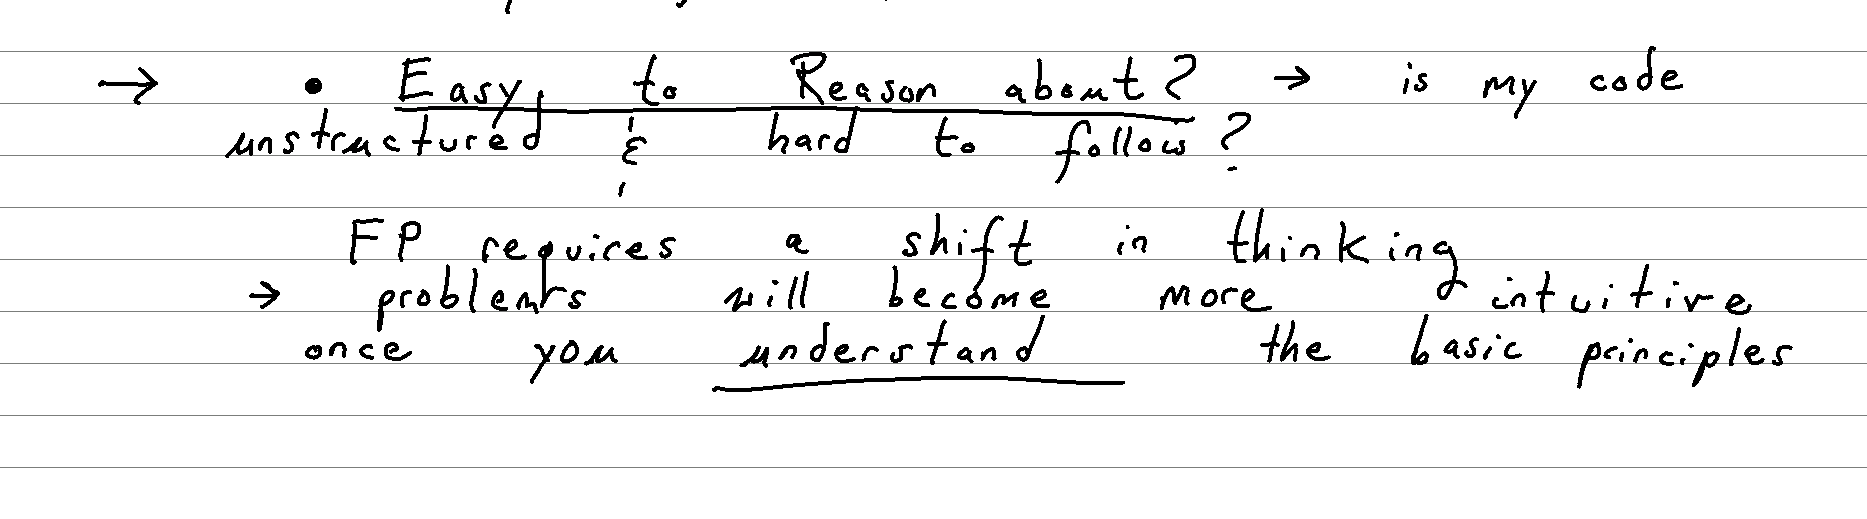 → • Easy to Reason about? → is my code
unstructured & hard to follow?
FP requires a shift in thinking
→ problems will become more intuitive
once you understand the basic principles